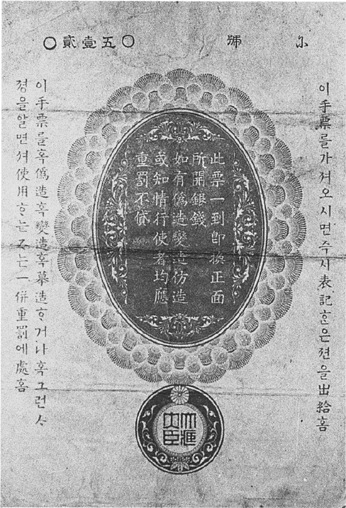 號 〇五壹貳〇
이手票를가져오시면즉시表記ᄒᆞᆫ은젼을出給홈
此票一到卽換正面
所開銀錢
如有僞造變造仿造
或知情行使者均應
重罰不貸
이手票를혹僞造혹變造혹摹造ᄒᆞ거나혹그런사
졍을알면셔使用ᄒᆞᄂᆞᆫ者ᄂᆞᆫ一併重罰에處홈